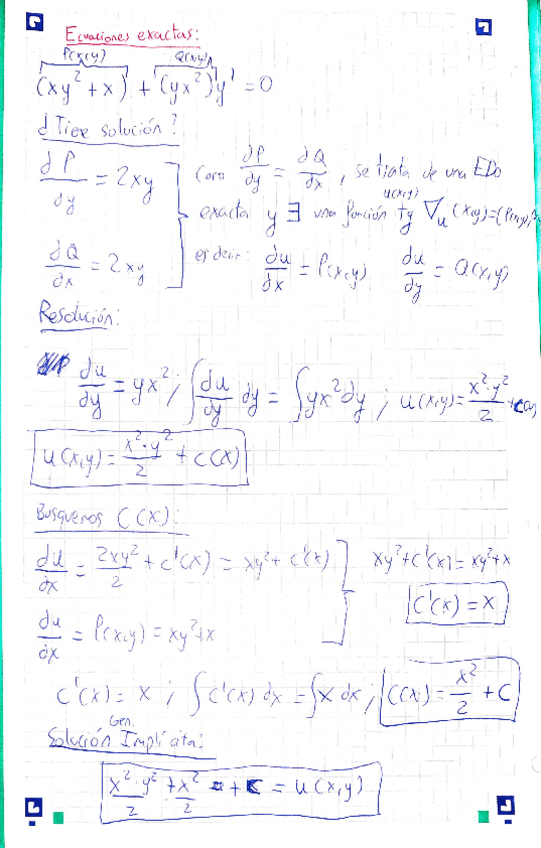 Ecuaciones exactas:
P(x,y) Q(x,y)
(xy² + x) + (yx²)y' = 0
¿Tiene solución?
∂P/∂y = 2xy
∂Q/∂x = 2xy
Como ∂P/∂y = ∂Q/∂x, se trata de una EDO
exacta y ∃ una función u(x,y) tq ∇u(x,y)=(P(x,y),
es decir: ∂u/∂x = P(x,y) ∂u/∂y = Q(x,y)
Resolución:
∂u/∂y = yx²; ∫ ∂u/∂y dy = ∫ yx² dy ; u(x,y) = x²·y²/2 +
u(x,y) = x²·y²/2 + C(x)
Busquemos C(x):
∂u/∂x = 2xy²/2 + c'(x) = xy² + c'(x)
∂u/∂x = P(x,y) = xy²+x
xy²+c'(x) = xy²+x
C'(x) = x
C'(x) = x ; ∫ C'(x) dx = ∫ x dx ; C(x) = x²/2 + C
Solución Gen. Implícita:
x²·y²/2 + x²/2 + C = u(x,y)